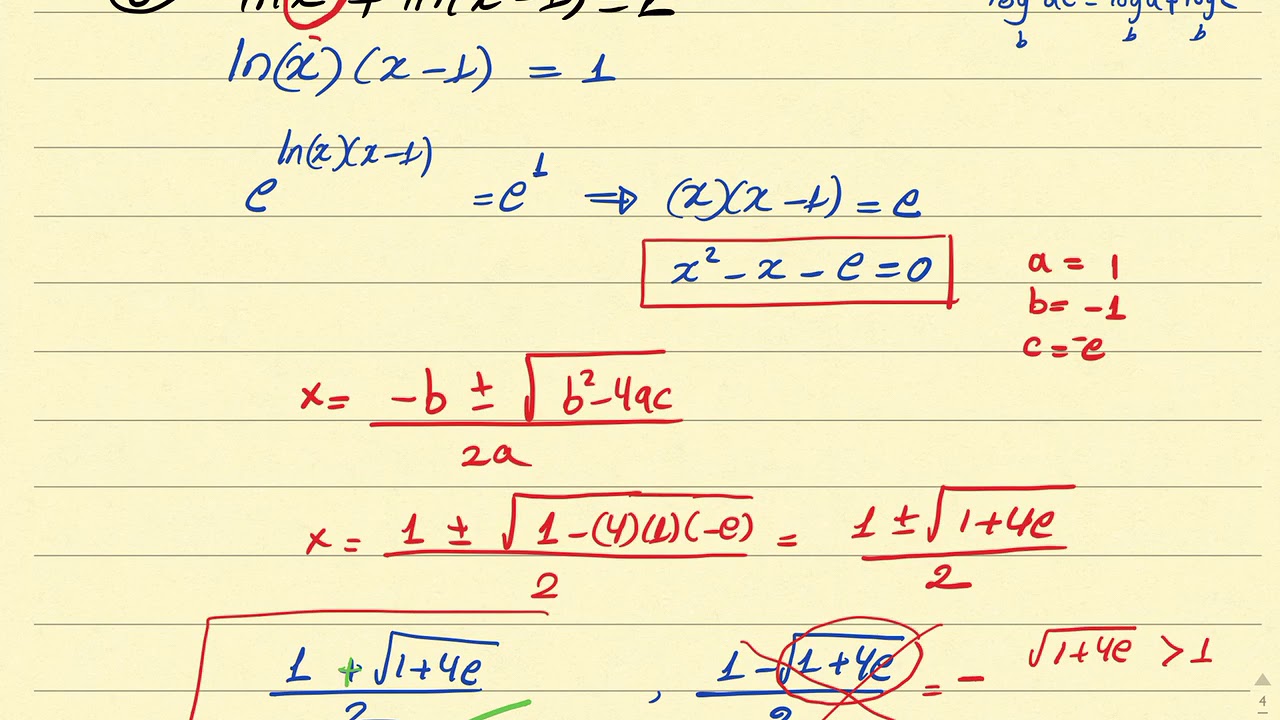 ln(x) + ln(x-1) = 1
ln(x)(x-1) = 1
e^{ln(x)(x-1)} = e^1 ⇒ (x)(x-1) = e
x² - x - e = 0
a = 1
b = -1
c = -e
x = \frac{-b ± \sqrt{b²-4ac}}{2a}
x = \frac{1 ± \sqrt{1-(4)(1)(-e)}}{2} = \frac{1 ± \sqrt{1+4e}}{2}
\frac{1 + \sqrt{1+4e}}{2} , \frac{1 - \sqrt{1+4e}}{2} = - \sqrt{1+4e} > 1
4